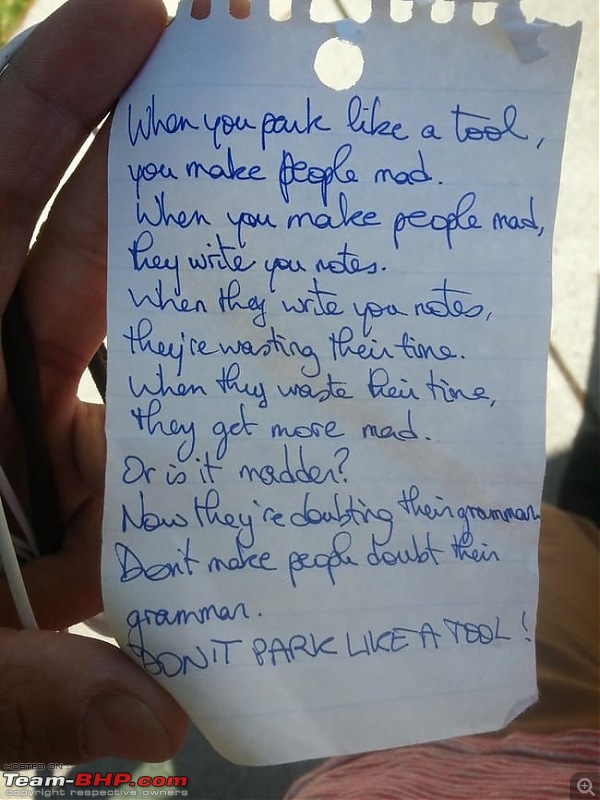 When you park like a tool,
you make people mad.
When you make people mad,
they write you notes.
When they write you notes,
they're wasting their time.
When they waste their time,
they get more mad.
Or is it madder?
Now they're doubting their grammar.
Don't make people doubt their
grammar.
DON'T PARK LIKE A TOOL!
HOSTED ON
Team-BHP.com
copyright respective owners